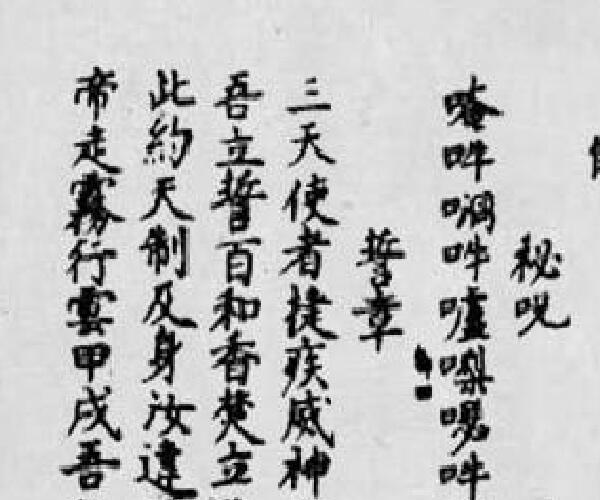 秘咒
唵吽吽嚧㗚吽
誓章
三天使者捷疾威神
吾立誓百和香焚立
此約天制及身汝違
帝走霧行雲甲戌吾